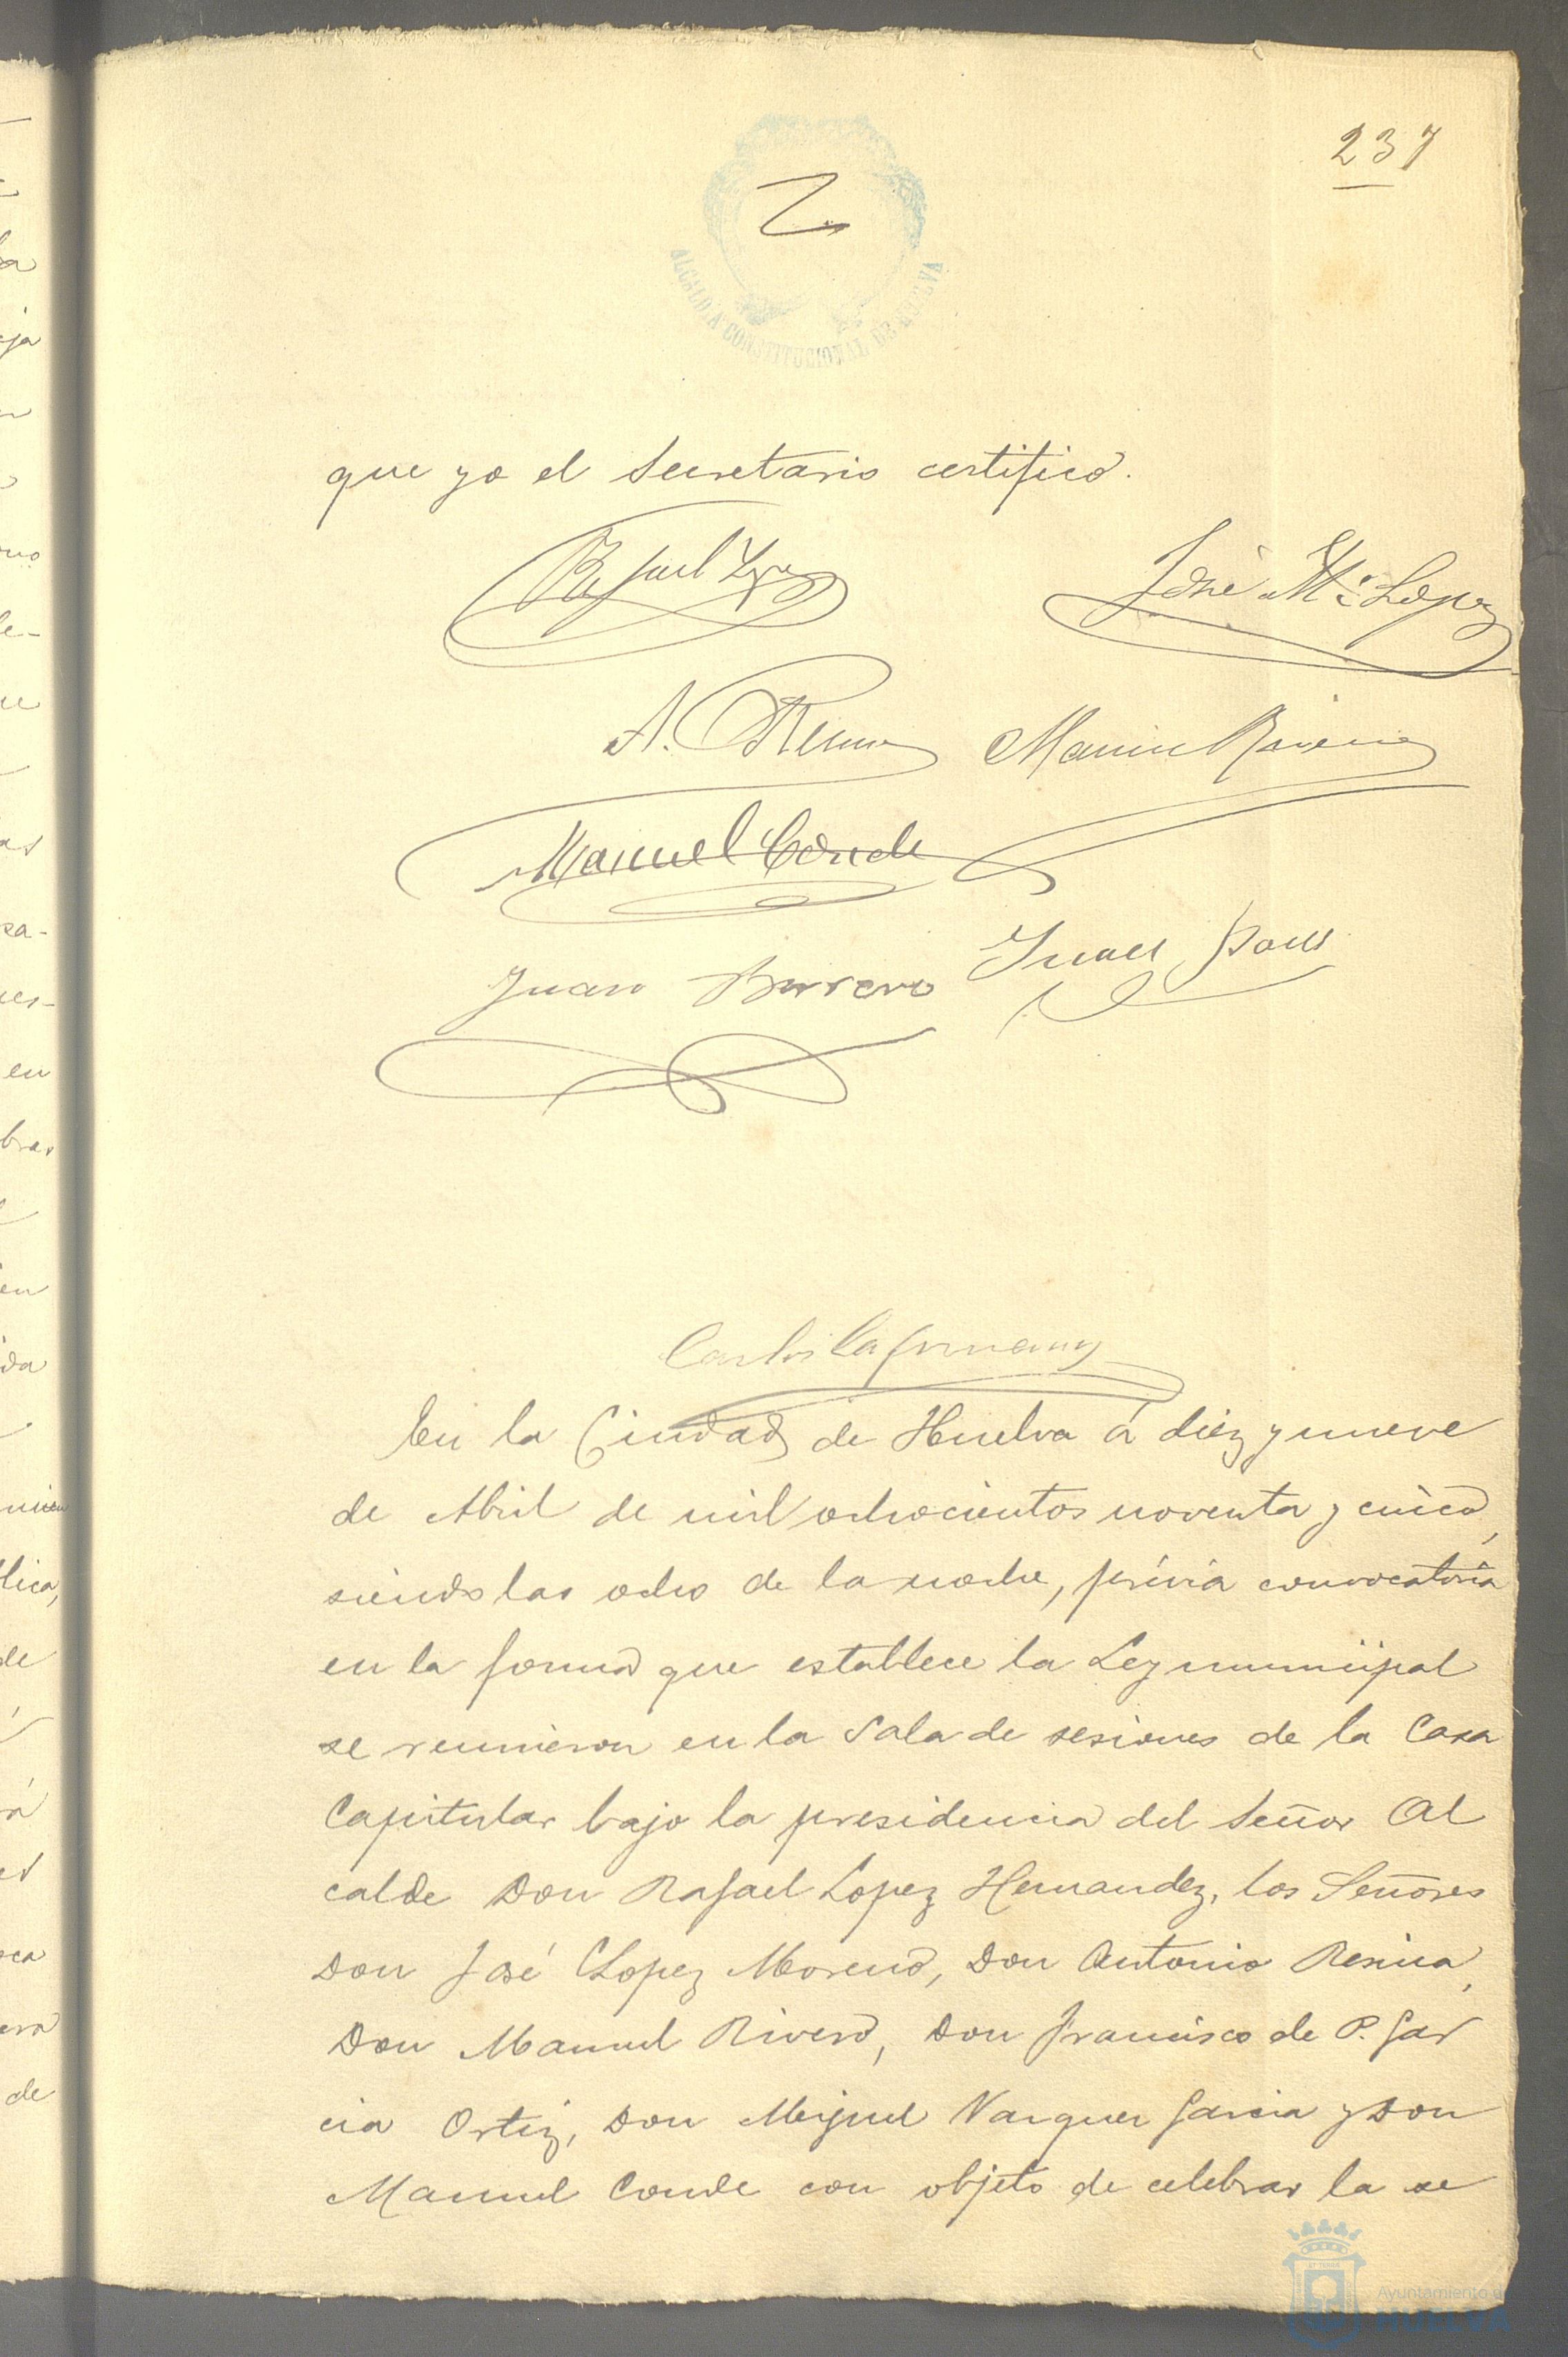 237
ALCALDÍA CONSTITUCIONAL DE HUELVA
que yo el Secretario certifico.
Rafael Lopez
José Mª Lopez
A. Resina
Manuel Rivero
Manuel Conde
Juan
Juan Borrero
Carlos
En la Ciudad de Huelva á diez y nueve
de Abril de mil ochocientos noventa y cinco,
siendo las ocho de la noche, prévia convocatoria
en la forma que establece la Ley municipal
se reunieron en la Sala de sesiones de la Casa
Capitular bajo la presidencia del Señor Al
calde Don Rafael Lopez Hernandez, los Señores
Don José Lopez Moreno, Don Antonio Resina,
Don Manuel Rivero, Don Francisco de P. Gar
cia Ortiz, Don Miguel Vazquez Garcia y Don
Manuel Conde con objeto de celebrar la se
Ayuntamiento de
HUELVA